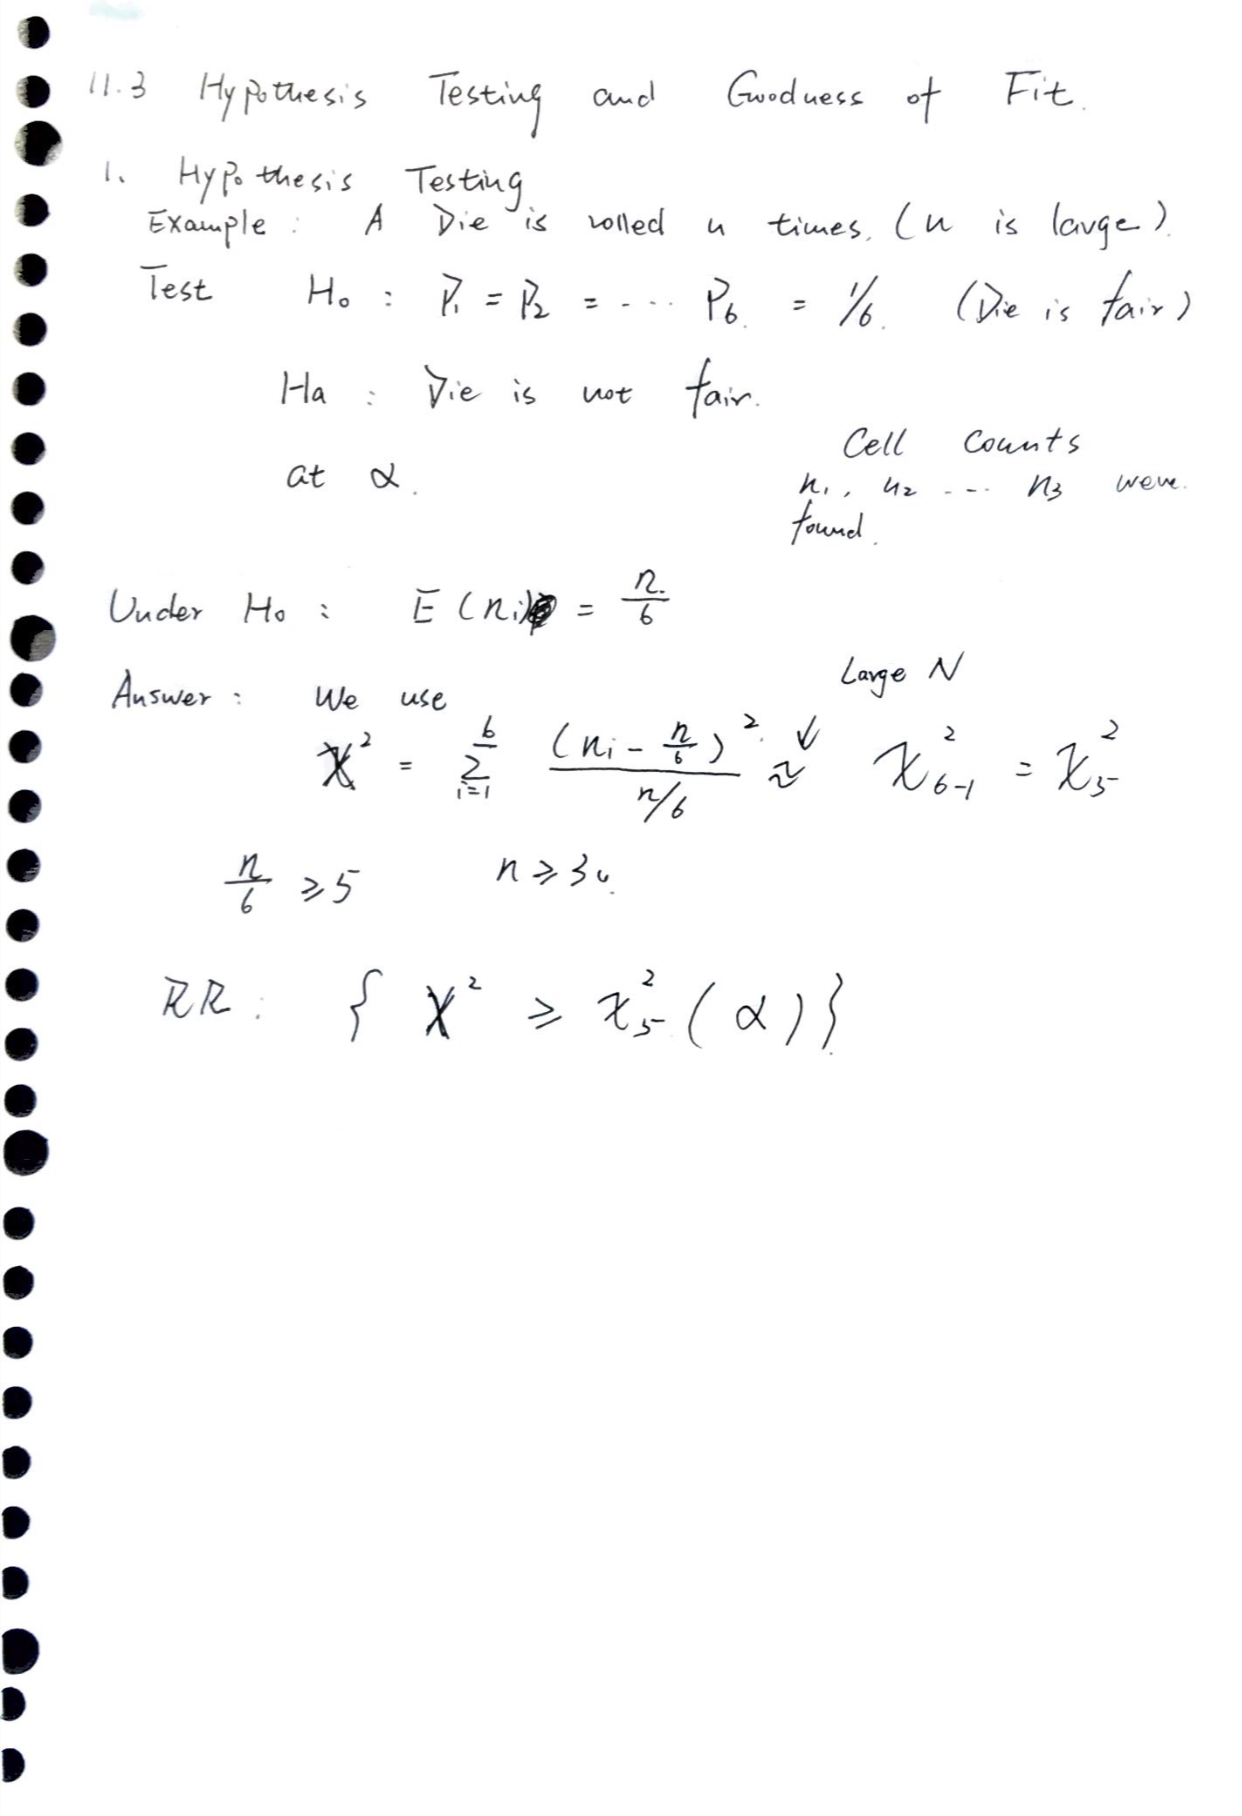 11.3 Hypothesis Testing and Goodness of Fit.
1. Hypothesis Testing
Example : A Die is rolled n times. (n is large).
Test H₀ : P₁ = P₂ = - - - P₆ = 1/6. (Die is fair)
Ha : Die is not fair.
at α.
Cell Counts
n₁, n₂ --- n₃ were
found.
Under H₀ : E(nᵢ) = n/6
Answer : We use
Large N
X² = Σᵢ₌₁⁶ (nᵢ - n/6)² / (n/6) ≈ χ²₆₋₁ = χ²₅
n/6 ≥ 5 n ≥ 30.
RR : { X² ≥ χ²₅ (α) }